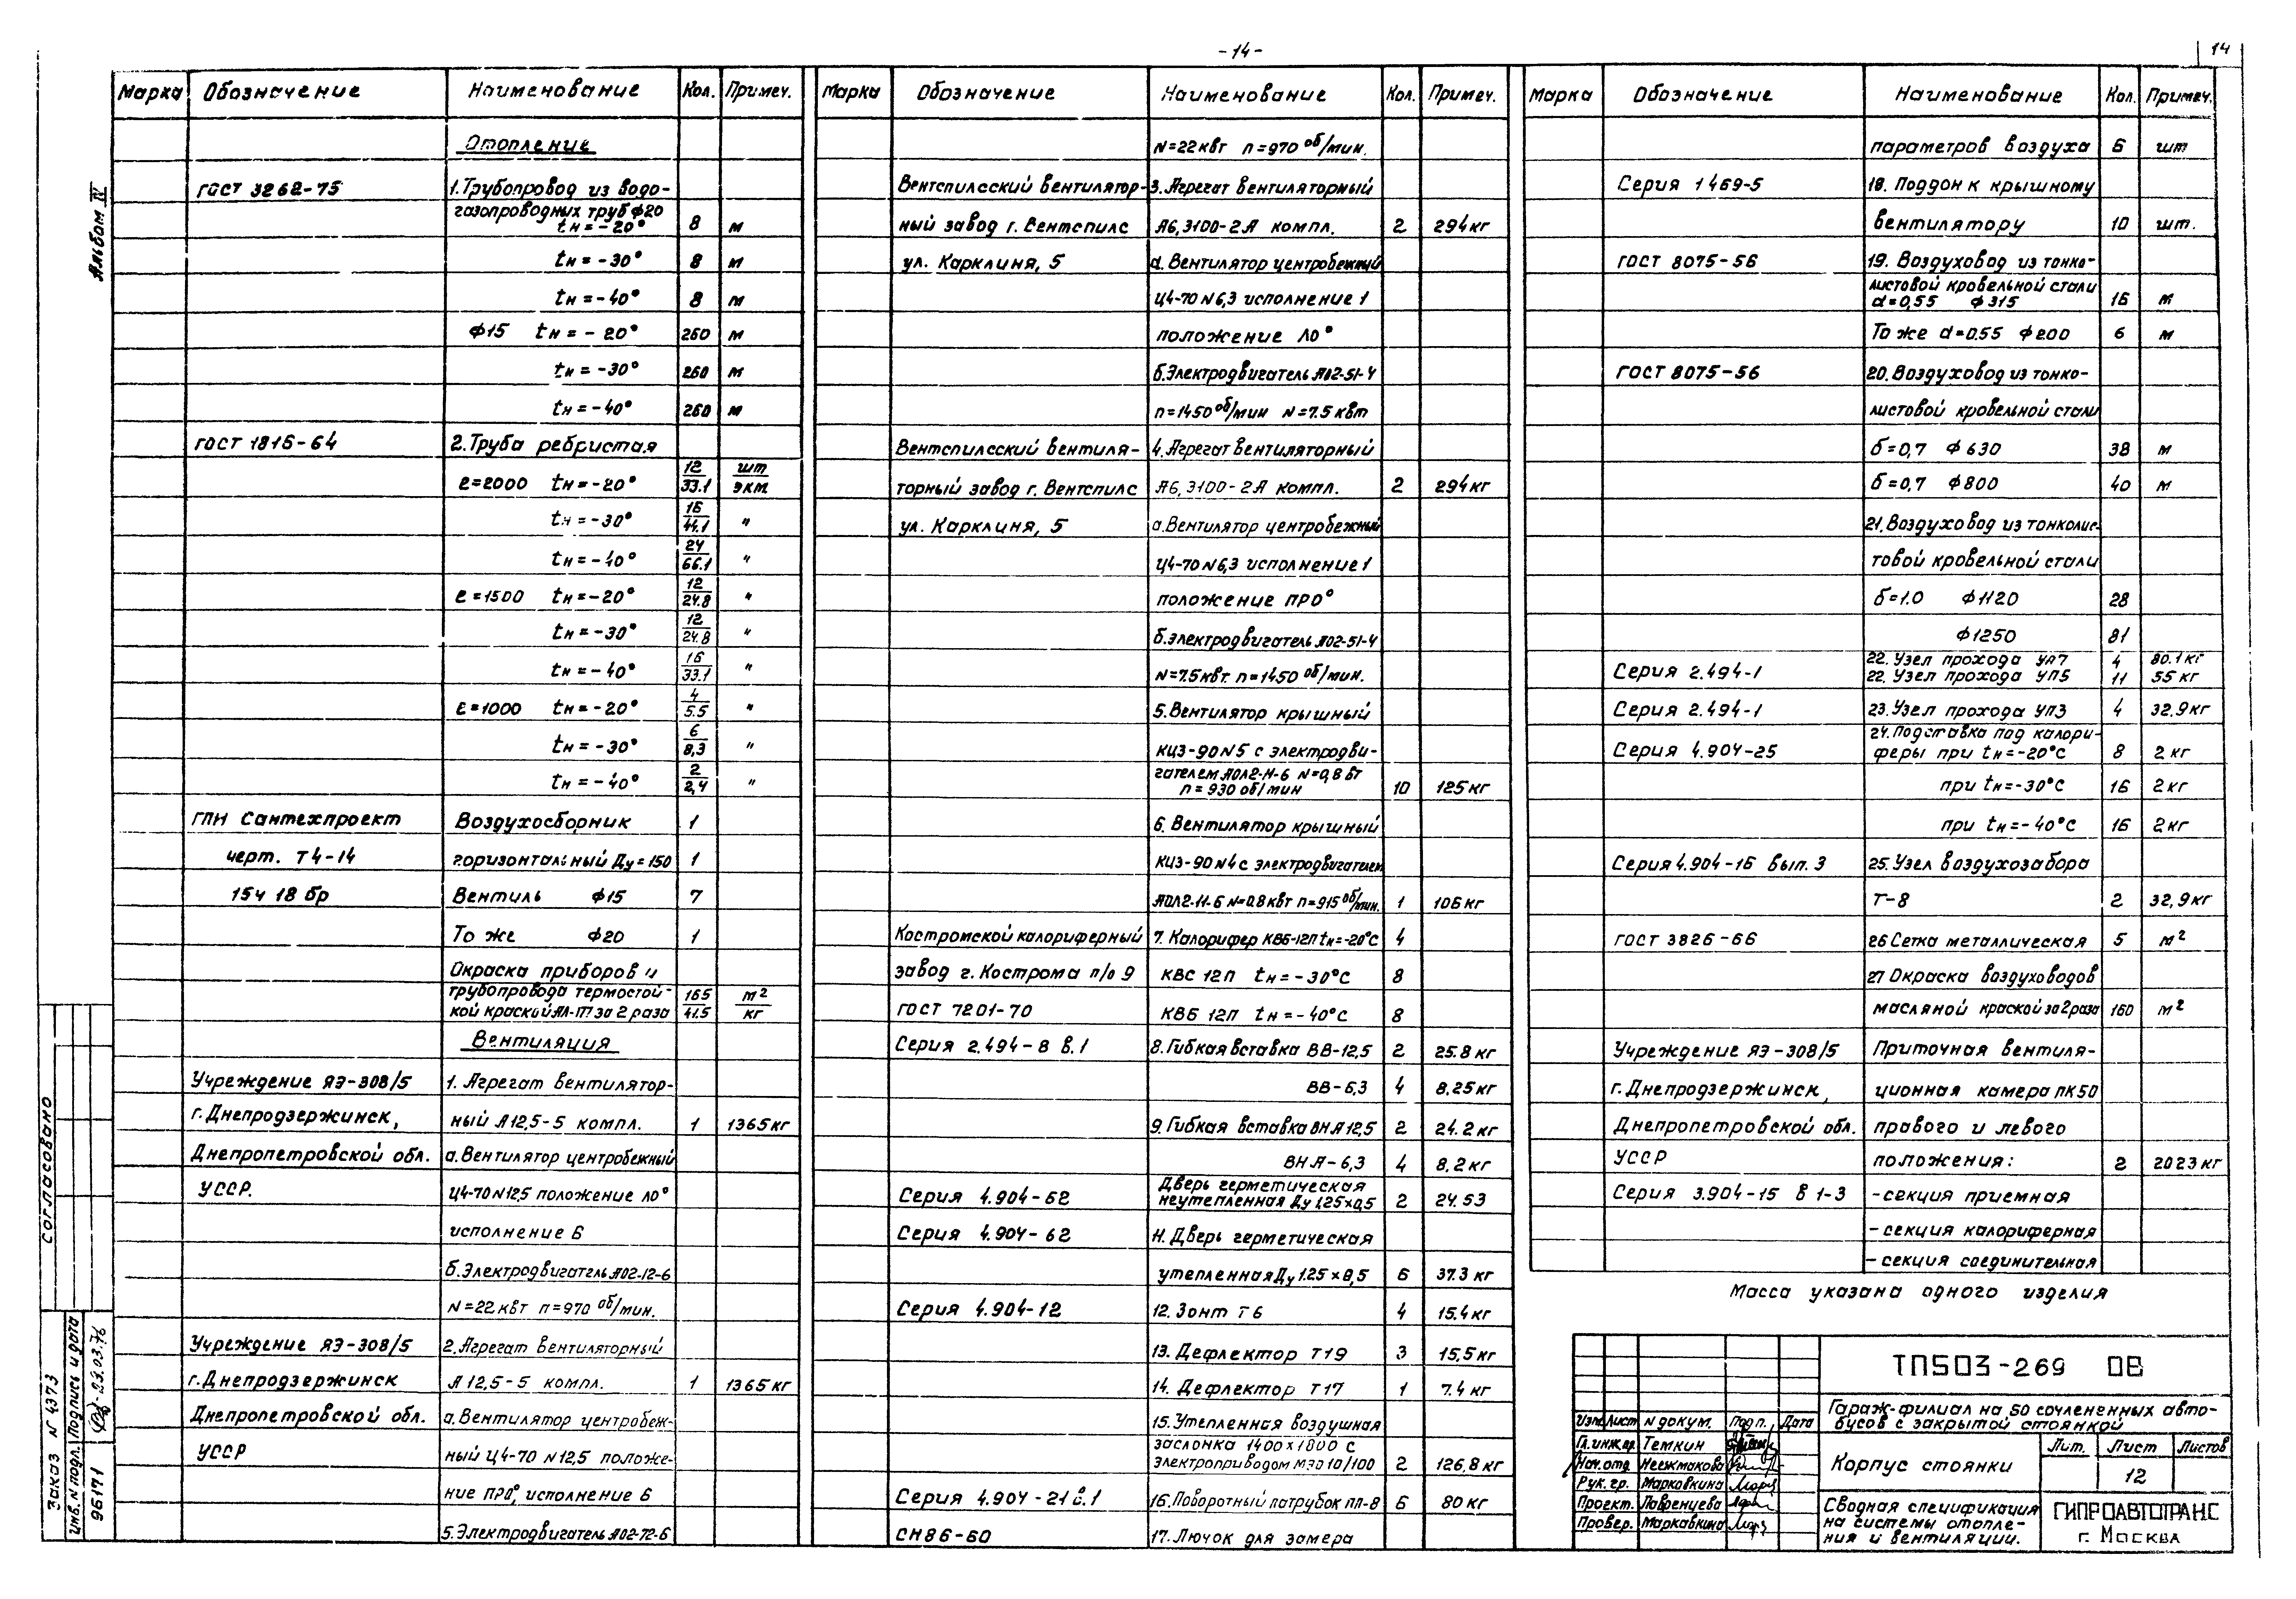 -14-
14
Альбом IV
Марка Обозначение Наименование Кол. Примеч.
Отопление
ГОСТ 3262-75 1.Трубопровод из водо-
газопроводных труб ф20
tн=-20° 8 м
tн=-30° 8 м
tн=-40° 8 м
ф15 tн=-20° 260 м
tн=-30° 260 м
tн=-40° 260 м
ГОСТ 1816-64 2.Труба ребристая
ℓ=2000 tн=-20° 12/33.1 шт/экм
tн=-30° 16/44.1 "
tн=-40° 24/66.1 "
ℓ=1500 tн=-20° 12/24.8 "
tн=-30° 12/24.8 "
tн=-40° 16/33.1 "
ℓ=1000 tн=-20° 4/5.5 "
tн=-30° 6/8,3 "
tн=-40° 2/2,4 "
ГПИ Сантехпроект Воздухосборник 1
черт. Т4-14 горизонтальный Ду=150 1
15ч 18 бр Вентиль ф15 7
То же ф20 1
Окраска приборов и
трубопровода термостой-
кой краской АЛ-177 за 2 раза 165/41.5 м²/кг
Вентиляция
Учреждение ЯЭ-308/5 1. Агрегат вентилятор-
г. Днепродзержинск, ный А12,5-5 компл. 1 1365кг
Днепропетровской обл. а.Вентилятор центробежный
УССР. Ц4-70 N12,5 положение Л0°
исполнение 6
б.Электродвигатель АО2-72-6
N=22 квт п=970 об/мин.
Учреждение ЯЭ-308/5 2.Агрегат вентиляторный
г.Днепродзержинск А 12,5-5 компл. 1 1365 кг
Днепропетровской обл. а.Вентилятор центробеж-
УССР ный Ц4-70 N12,5 положе-
ние ПР0°, исполнение 6
б.Электродвигатель АО2-72-6
Марка Обозначение Наименование Кол. Примеч.
N=22квт п=970 об/мин.
Вентспилсский вентилятор- 3.Агрегат вентиляторный
ный завод г. Вентспилс А6,3100-2А компл. 2 294кг
ул. Карклиня, 5 а. Вентилятор центробежный
Ц4-70 N6,3 исполнение 1
положение Л0°
б.Электродвигатель АО2-51-4
п=1450 об/мин N=7.5 квт
Вентспилсский вентиля- 4.Агрегат вентиляторный
торный завод г. Вентспилс А6,3100-2А компл. 2 294кг
ул. Карклиня, 5 а.Вентилятор центробежный
Ц4-70 N6,3 исполнение 1
положение ПР0°
б.электродвигатель АО2-51-4
N=7.5квт п=1450 об/мин.
5.Вентилятор крышный
КЦ3-90 N5 с электродви-
гателем АОЛ2-11-6 N=0,8 вт
п=930 об/мин 10 125кг
6. Вентилятор крышный
КЦ3-90 N4 с электродвигателем
АОЛ2-11-6 N=0.8квт п=915 об/мин. 1 106кг
Костромской калориферный 7. Калорифер КВБ-12П tн=-20°С 4
завод г. Кострома п/о 9 КВС 12П tн=-30°С 8
ГОСТ 7201-70 КВБ 12П tн=-40°С 8
Серия 2.494-8 в.1 8.Гибкая вставка ВВ-12,5 2 25.8 кг
ВВ-6,3 4 8.25кг
9.Гибкая вставка ВНА12,5 2 24.2кг
ВНА-6,3 4 8,2кг
Серия 4.904-62 Дверь герметическая
неутепленная Ду 1,25х0,5 2 24.53
Серия 4.904-62 11. Дверь герметическая
утепленная Ду 1.25х0,5 6 37.3 кг
Серия 4.904-12 12. Зонт Т6 4 15.4кг
13. Дефлектор Т19 3 15,5кг
14. Дефлектор Т17 1 7.4 кг
15.Утепленная воздушная
заслонка 1400х1800 с
электроприводом МЭО 10/100 2 126,8 кг
Серия 4.904-21 в.1 16.Поворотный патрубок ПП-8 6 80 кг
СН86-60 17. Лючок для замера
Марка Обозначение Наименование Кол. Примеч.
параметров воздуха 6 шт
Серия 1469-5 18. Поддон к крышному
вентилятору 10 шт.
ГОСТ 8075-56 19. Воздуховод из тонко-
листовой кровельной стали
d=0,55 ф315 16 м
То же d=0.55 ф200 6 м
ГОСТ 8075-56 20.Воздуховод из тонко-
листовой кровельной стали
б=0,7 ф630 38 м
б=0,7 ф800 40 м
21.Воздуховод из тонколис-
товой кровельной стали
б=1.0 ф1120 28
ф1250 81
22. Узел прохода УП7 4 80.1кг
Серия 2.494-1 22. Узел прохода УП5 11 55 кг
Серия 2.494-1 23.Узел прохода УП3 4 32.9кг
24.Подставка под калори-
Серия 4.904-25 феры при tн=-20°С 8 2 кг
при tн=-30°С 16 2кг
при tн=-40°С 16 2кг
Серия 4.904-16 вып. 3 25.Узел воздухозабора
Т-8 2 32,9кг
ГОСТ 3826-66 26 Сетка металлическая 5 м²
27 Окраска воздуховодов
масляной краской за 2 раза 160 м²
Учреждение ЯЭ-308/5 Приточная вентиля-
г. Днепродзержинск, ционная камера ПК50
Днепропетровской обл. правого и левого
УССР положения: 2 2023кг
Серия 3.904-15 в 1-3 -секция приемная
-секция калориферная
-секция соединительная
Масса указана одного изделия
ТП503-269 ОВ
Гараж-филиал на 50 сочлененных авто-
бусов с закрытой стоянкой
Изм. Лист N докум. Подп. Дата
Гл.инж.пр. Темкин
Нач.отд. Неежмакова
Рук. гр. Марковкина
Проект. Лавренцева
Провер. Марковкина
Корпус стоянки
Лит. Лист Листов
12
Сводная спецификация
на системы отопле-
ния и вентиляции.
ГИПРОАВТОТРАНС
г. Москва
Согласовано
Заказ N 4373
Инв. N подл. Подпись и дата
95171 23.03.76